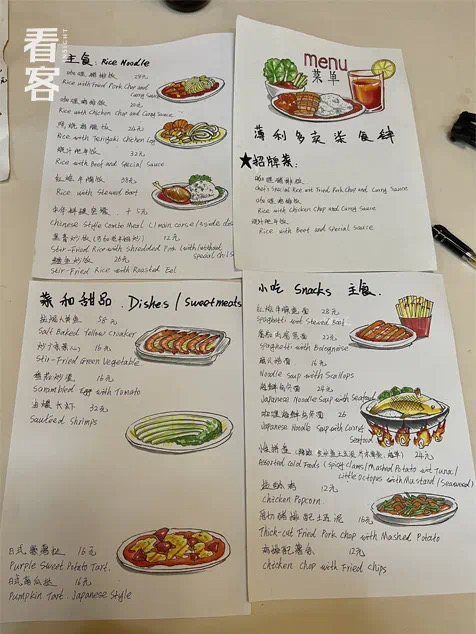 看客
INSIGHT
主食: Rice Noodle
咖喱猪排饭 28元
Rice with Fried Pork Chop and
Curry Sauce
咖喱鸡排饭 20元
Rice with Chicken Chop and Curry Sauce
照烧鸡腿饭 26元
Rice with Teriyaki Chicken Leg
饭 32元
Rice with Beef and Special Sauce
红烧牛腩饭 38元
Rice with Stewed Beef
+ 5元
Chinese Style Combo Meal (1 main corse/1 side dish
12元
Stir-Fried Rice with Shredded Pork (with/without
special chili
鳗鱼炒饭 26元
Stir-Fried Rice with Roasted Eel
menu
菜单
薄利多卖 柒食肆
★招牌菜:
咖喱猪排饭
Chef's Special Rice with Fried Pork Chop and Curry Sauce
咖喱鸡排饭
Rice with Chicken Chop and Curry Sauce
饭
Rice with Beef and Special Sauce
菜和甜品. Dishes/Sweetmeats
盐焗大黄鱼 58元
Salt Baked Yellow Croaker
16元
Stir-Fried Green Vegetable
番茄炒蛋 16元
Scrambled Egg with Tomato
油爆大虾 32元
Sauteed Shrimps
日式紫薯挞 16元
Purple Sweet Potato Tart.
日式南瓜挞 16元
Pumpkin Tart Japanese Style
小吃 Snacks 主食.
红烧牛腩意面 28元
Spaghetti with Stewed Beef
番茄肉酱意面 22元
Spaghetti with Bolognaise
16元
Noodle Soup with Scallops
海鲜乌冬面 24元
Japanese Noodle Soup with Seafood
咖喱海鲜乌冬面 26
Japanese Noodle Soup with Curry
Seafood
24元
Assorted Cold Foods (Spicy Clams/Mashed Potato wit Tuna/
Little Octopus with Mustard/Seaweed)
盐酥鸡 12元
Chicken Popcorn
厚切猪排配土豆泥 16元
Thick-cut Fried Pork Chop with Mashed Potato
鸡排配薯条 12元
Chicken Chop with Fried Chips